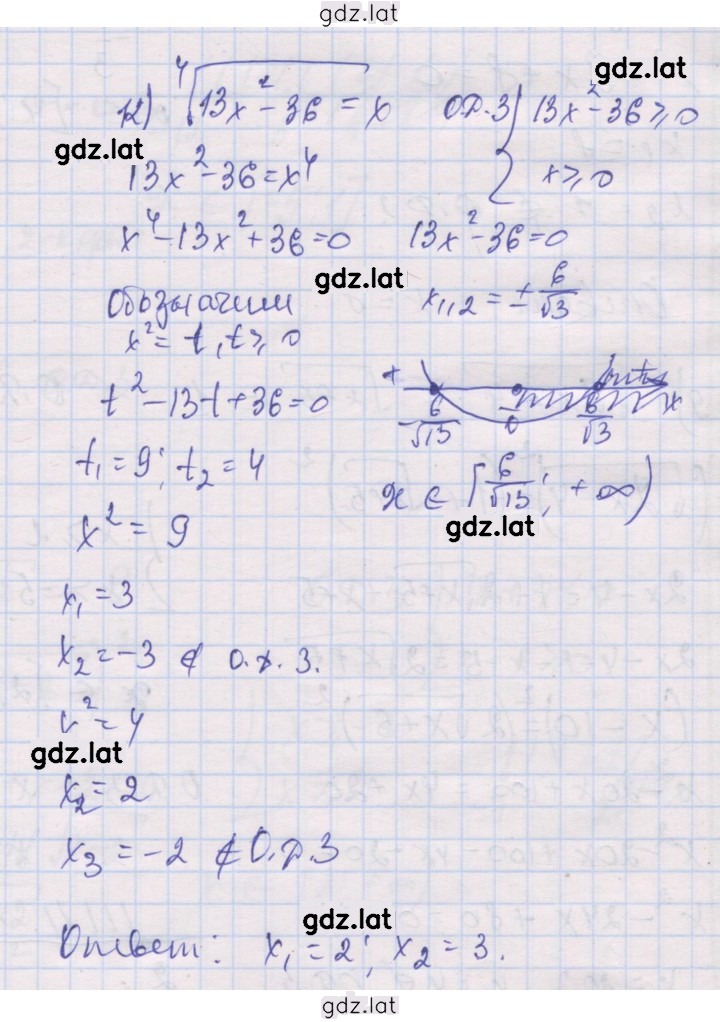 gdz.lat
12) ⁴√13x² - 36 = x
О.Д.З { 13x² - 36 ⩾ 0
x ⩾ 0
gdz.lat
13x² - 36 = x⁴
x⁴ - 13x² + 36 = 0
13x² - 36 = 0
gdz.lat
Обозначим
x² = t, t ⩾ 0
x₁,₂ = ± 6/√3
t² - 13t + 36 = 0
+ - x
6/√13 0 6/√3
t₁ = 9; t₂ = 4
x ∈ [6/√13; +∞)
gdz.lat
x² = 9
x₁ = 3
x₂ = -3 ∉ О.Д.З.
x² = 4
gdz.lat
x₂ = 2
x₃ = -2 ∉ О.Д.З
gdz.lat
Ответ: x₁ = 2; x₂ = 3.
gdz.lat